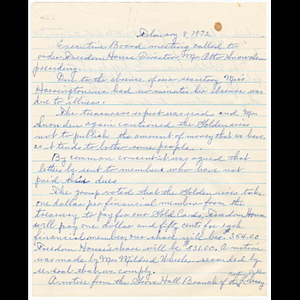 February 8, 1972
Executive Board meeting called to
order, Freedom House Director, Mr Otto Snowden
presiding.
Due to the absence of our secretary Miss
Harrington we had no minutes her absence was
due to illness.
The treasurers report was read and Mr
Snowden again cautioned the Goldenaires
not to publish the amount of money that we have
as it tends to bother some people.
By common consent it was agreed that
letters be sent to members who have not
paid their dues
The group voted that the Goldenaires take
one dollar per financial member from the
treasury to pay for our Gold Cards, Freedom House
will pay one dollar and fifty cents for each
financial member, our share will be $54.00
Freedom House's share will be $81.00. A motion
was made by Mrs Mildred Wheeler seconded by
several that we comply.
A notice from the Grove Hall Branch of the Library